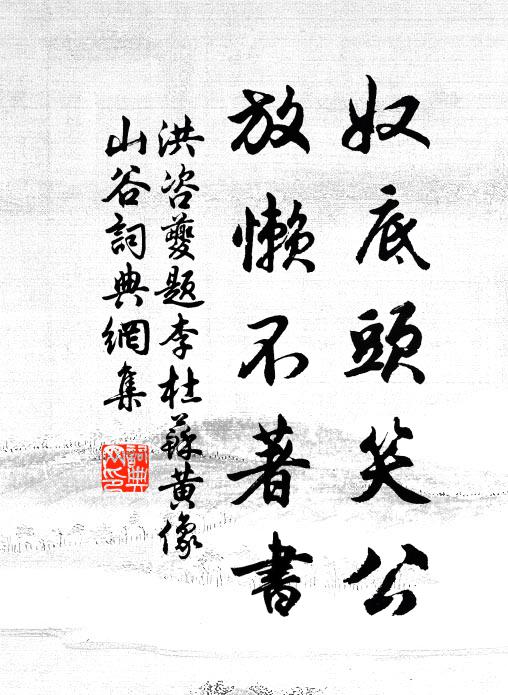 奴底頭笑公
放懶不著書
洪咨夔題李杜蘇黃像
山谷詞典網集
詞典
网印